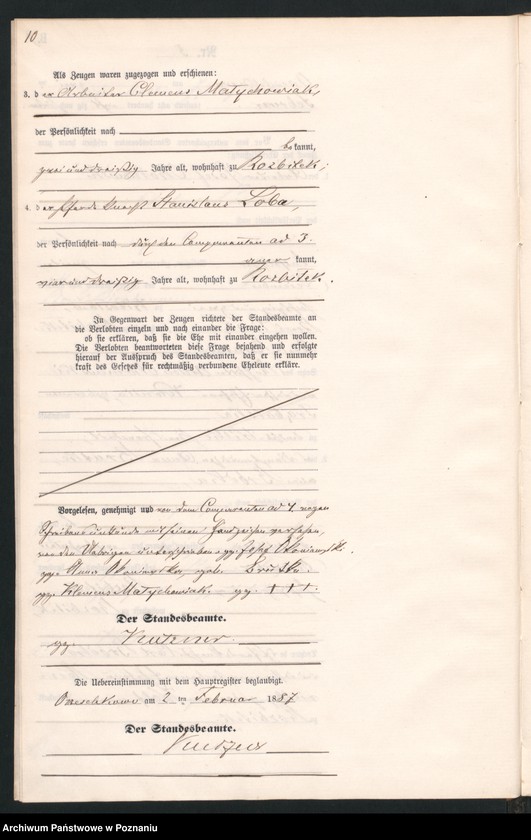 10
Als Zeugen waren zugezogen und erschienen:
3. der Arbeiter Clemens Matychowiak,
der Persönlichkeit nach
bekannt,
zwei und dreißig Jahre alt, wohnhaft zu Rozbitek;
4. der Pferdeknecht Stanislaus Loba,
der Persönlichkeit nach durch den Comparenten ad 3.
kannt,
vier und dreißig Jahre alt, wohnhaft zu Rozbitek.
In Gegenwart der Zeugen richtete der Standesbeamte an
die Verlobten einzeln und nach einander die Frage:
ob sie erklären, daß sie die Ehe mit einander eingehen wollen.
Die Verlobten beantworteten diese Frage bejahend und erfolgte
hierauf der Ausspruch des Standesbeamten, daß er sie nunmehr
kraft des Gesetzes für rechtmäßig verbundene Eheleute erkläre.
Vorgelesen, genehmigt und von dem Comparenten ad 4. wegen
Schreibensunkunde mit seinem Handzeichen versehen,
von den Uebrigen unterschrieben. gez. Josef
gez. Anna geb.
gez. Klemens Matychowiak. gez. +++.
Der Standesbeamte.
gez.
Die Uebereinstimmung mit dem Hauptregister beglaubigt.
am 2 ten Februar 1887
Der Standesbeamte.
Archiwum Państwowe w Poznaniu